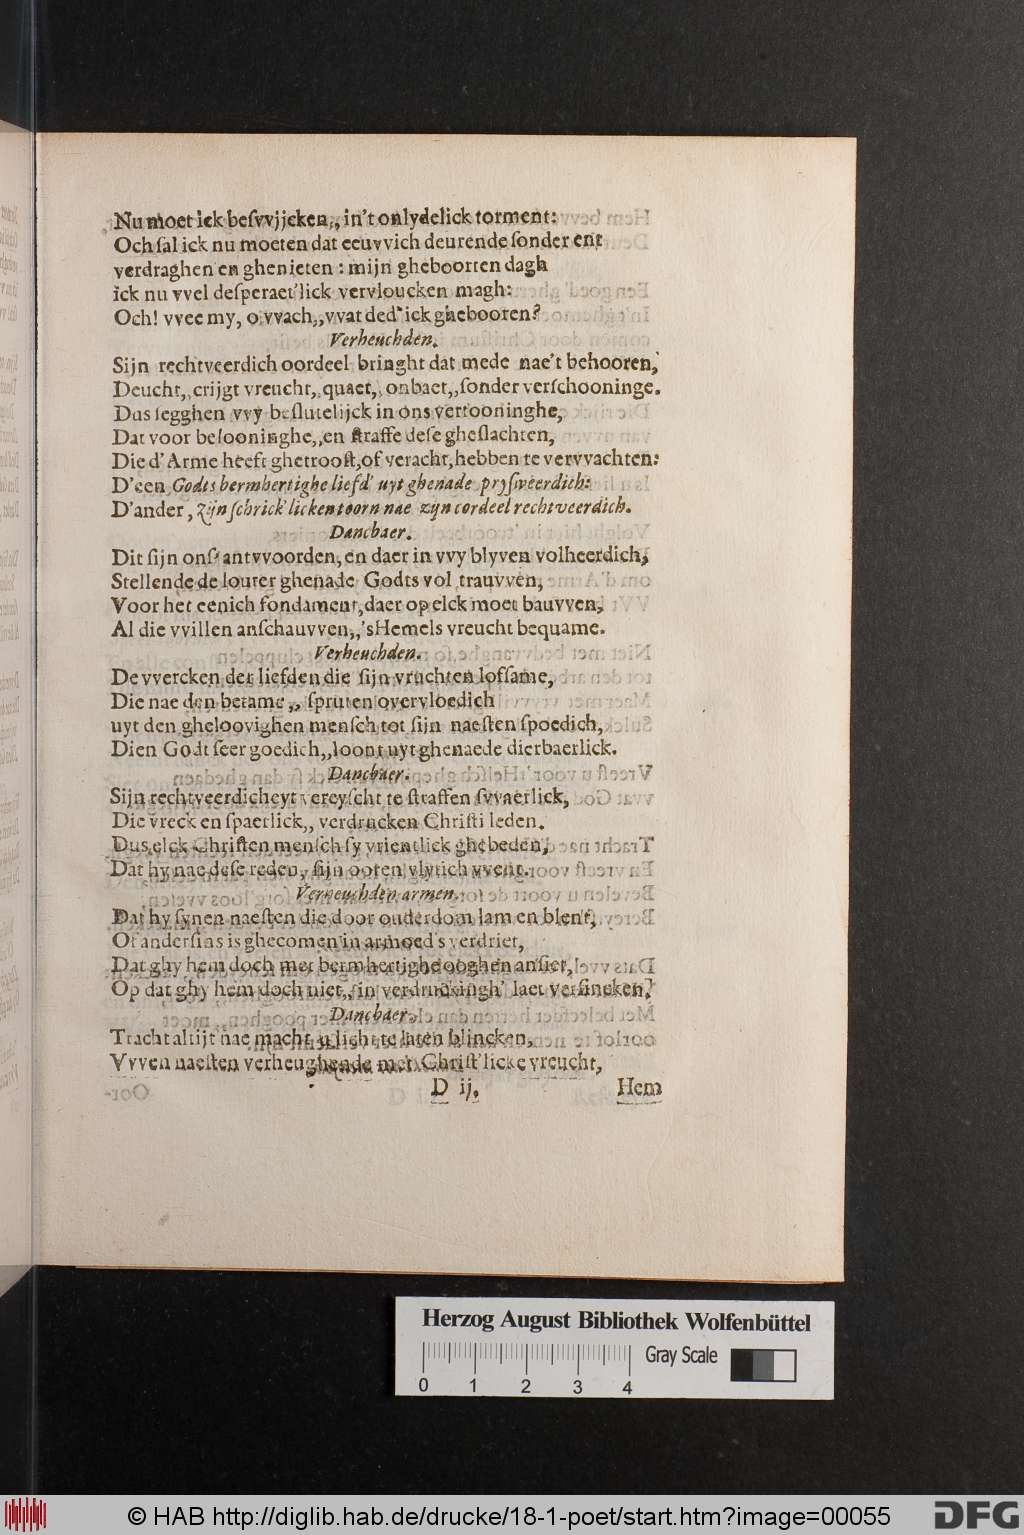 Nu moet ick beſvvijcken,, in't onlydelick torment:
Och ſal ick nu moeten dat eeuvvich deurende ſonder ent
verdraghen en ghenieten : mijn gheboorten dagh
ick nu vvel deſperaet'lick vervloucken magh:
Och! vvee my, o vvach,, vvat ded' ick ghebooren?
Verheuchden.
Sijn rechtveerdich oordeel bringht dat mede nae't behooren,
Deucht,, crijgt vreucht,, quaet,, onbaet,, ſonder verſchooninge.
Dus ſegghen vvy beſlutelijck in ons vertooninghe,
Dat voor belooninghe,, en ſtraffe deſe gheſlachten,
Die d'Arme heeft ghetrooſt, of veracht, hebben te vervvachten:
D'een Godts bermhertighe liefd' uyt ghenade pryſweerdich:
D'ander, zijn ſchrick'licken toorn nae zyn oordeel rechtveerdich.
Dancbaer.
Dit ſijn onſ' antvvoorden, en daer in vvy blyven volheerdich,
Stellende de louter ghenade Godts vol trauvven,
Voor het eenich fondament, daer op elck moet bauvven,
Al die vvillen anſchauvven,, 'sHemels vreucht bequame.
Verheuchden.
De vvercken der liefden die ſijn vruchten loffſame,
Die nae den betame,, ſpruten overvloedich
uyt den gheloovighen menſch tot ſijn naeſten ſpoedich,
Dien Godt ſeer goedich,, loont uyt ghenaede dierbaerlick.
Dancbaer.
Sijn rechtveerdicheyt vereyſcht te ſtraffen ſvvaerlick,
Die vreck en ſpaerlick,, verdrucken Chriſti leden.
Dus elck Chriſten menſch ſy vrientlick ghebeden,
Dat hy nae deſe reden,, ſijn ooren vlytich vvent.
Verheuchden armen.
Dat hy ſynen naeſten die door ouderdom lam en blent,
Of anderſins is ghecomen in armoed's verdriet,
Dat ghy hem doch met bermhertighe ooghen anſiet,
Op dat ghy hem doch niet,, in verdruuſingh' laet verſincken,
Dancbaer.
Tracht altijt nae macht,, u licht te laten blincken,
Vvven naeſten verheughende met Chriſt'licke vreucht,
D ij.
Hem
Herzog August Bibliothek Wolfenbüttel
Gray Scale
0 1 2 3 4
© HAB http://diglib.hab.de/drucke/18-1-poet/start.htm?image=00055
DFG